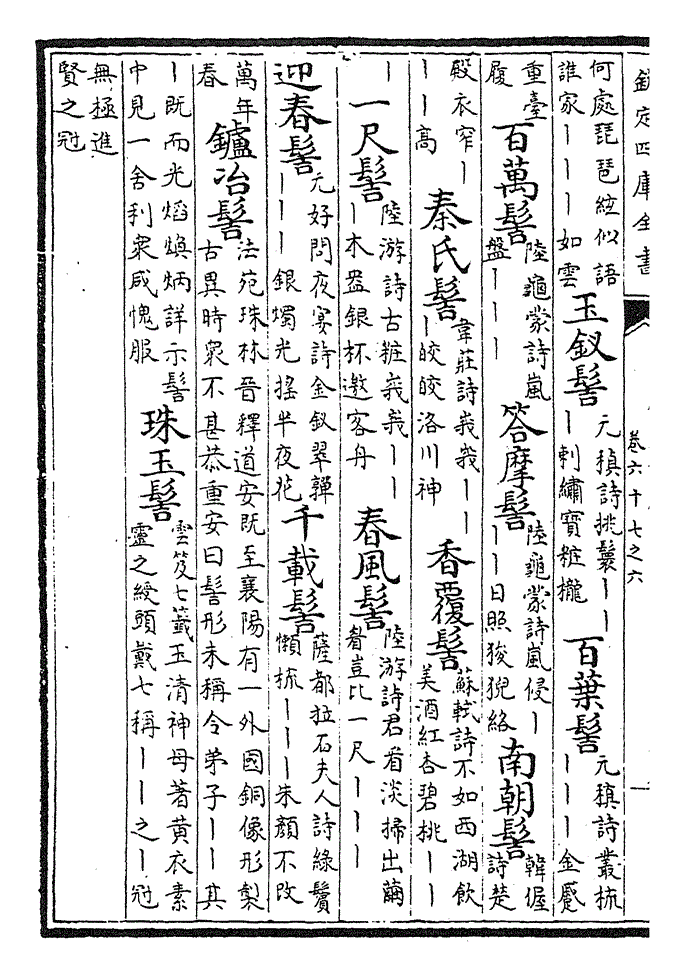 欽定四庫全書 卷六十七之六 一
何處琵琶絃似語
誰家丨丨丨如雲
玉釵髻
元稹詩挑鬟丨丨
丨刺繡寶粧攏
百葉髻
元稹詩叢梳
丨丨丨金蹙
重臺
履
百萬髻
陸龜蒙詩嵐
盤丨丨丨
峇摩髻
陸龜蒙詩嵐侵丨
丨丨日照狻猊絡
南朝髻
韓偓
詩楚
殿衣窄丨
丨丨高
秦氏髻
韋莊詩峩峩丨丨
丨皎皎洛川神
香覆髻
蘇軾詩不如西湖飲
美酒紅杏碧桃丨丨
丨
一尺髻
陸游詩古粧峩峩丨丨
丨木盎銀杯邀客舟
春風髻
陸游詩君看淡掃出繭
豈比一尺丨丨丨
迎春髻
元好問夜宴詩金釵翠嚲
丨丨丨銀燭光搖半夜花
千載髻
薩都拉石夫人詩綠鬢
懶梳丨丨丨朱顔不改
萬年
春
鑪冶髻
法苑珠林晉釋道安既至襄陽有一外國銅像形製
古異時衆不甚恭重安曰髻形未稱令弟子丨丨其
丨既而光熖煥炳詳示髻
中見一舍利衆咸愧服
珠玉髻
雲笈七籤玉清神母著黄衣素
靈之綬頭戴七稱丨丨之丨冠
無極進
賢之冠